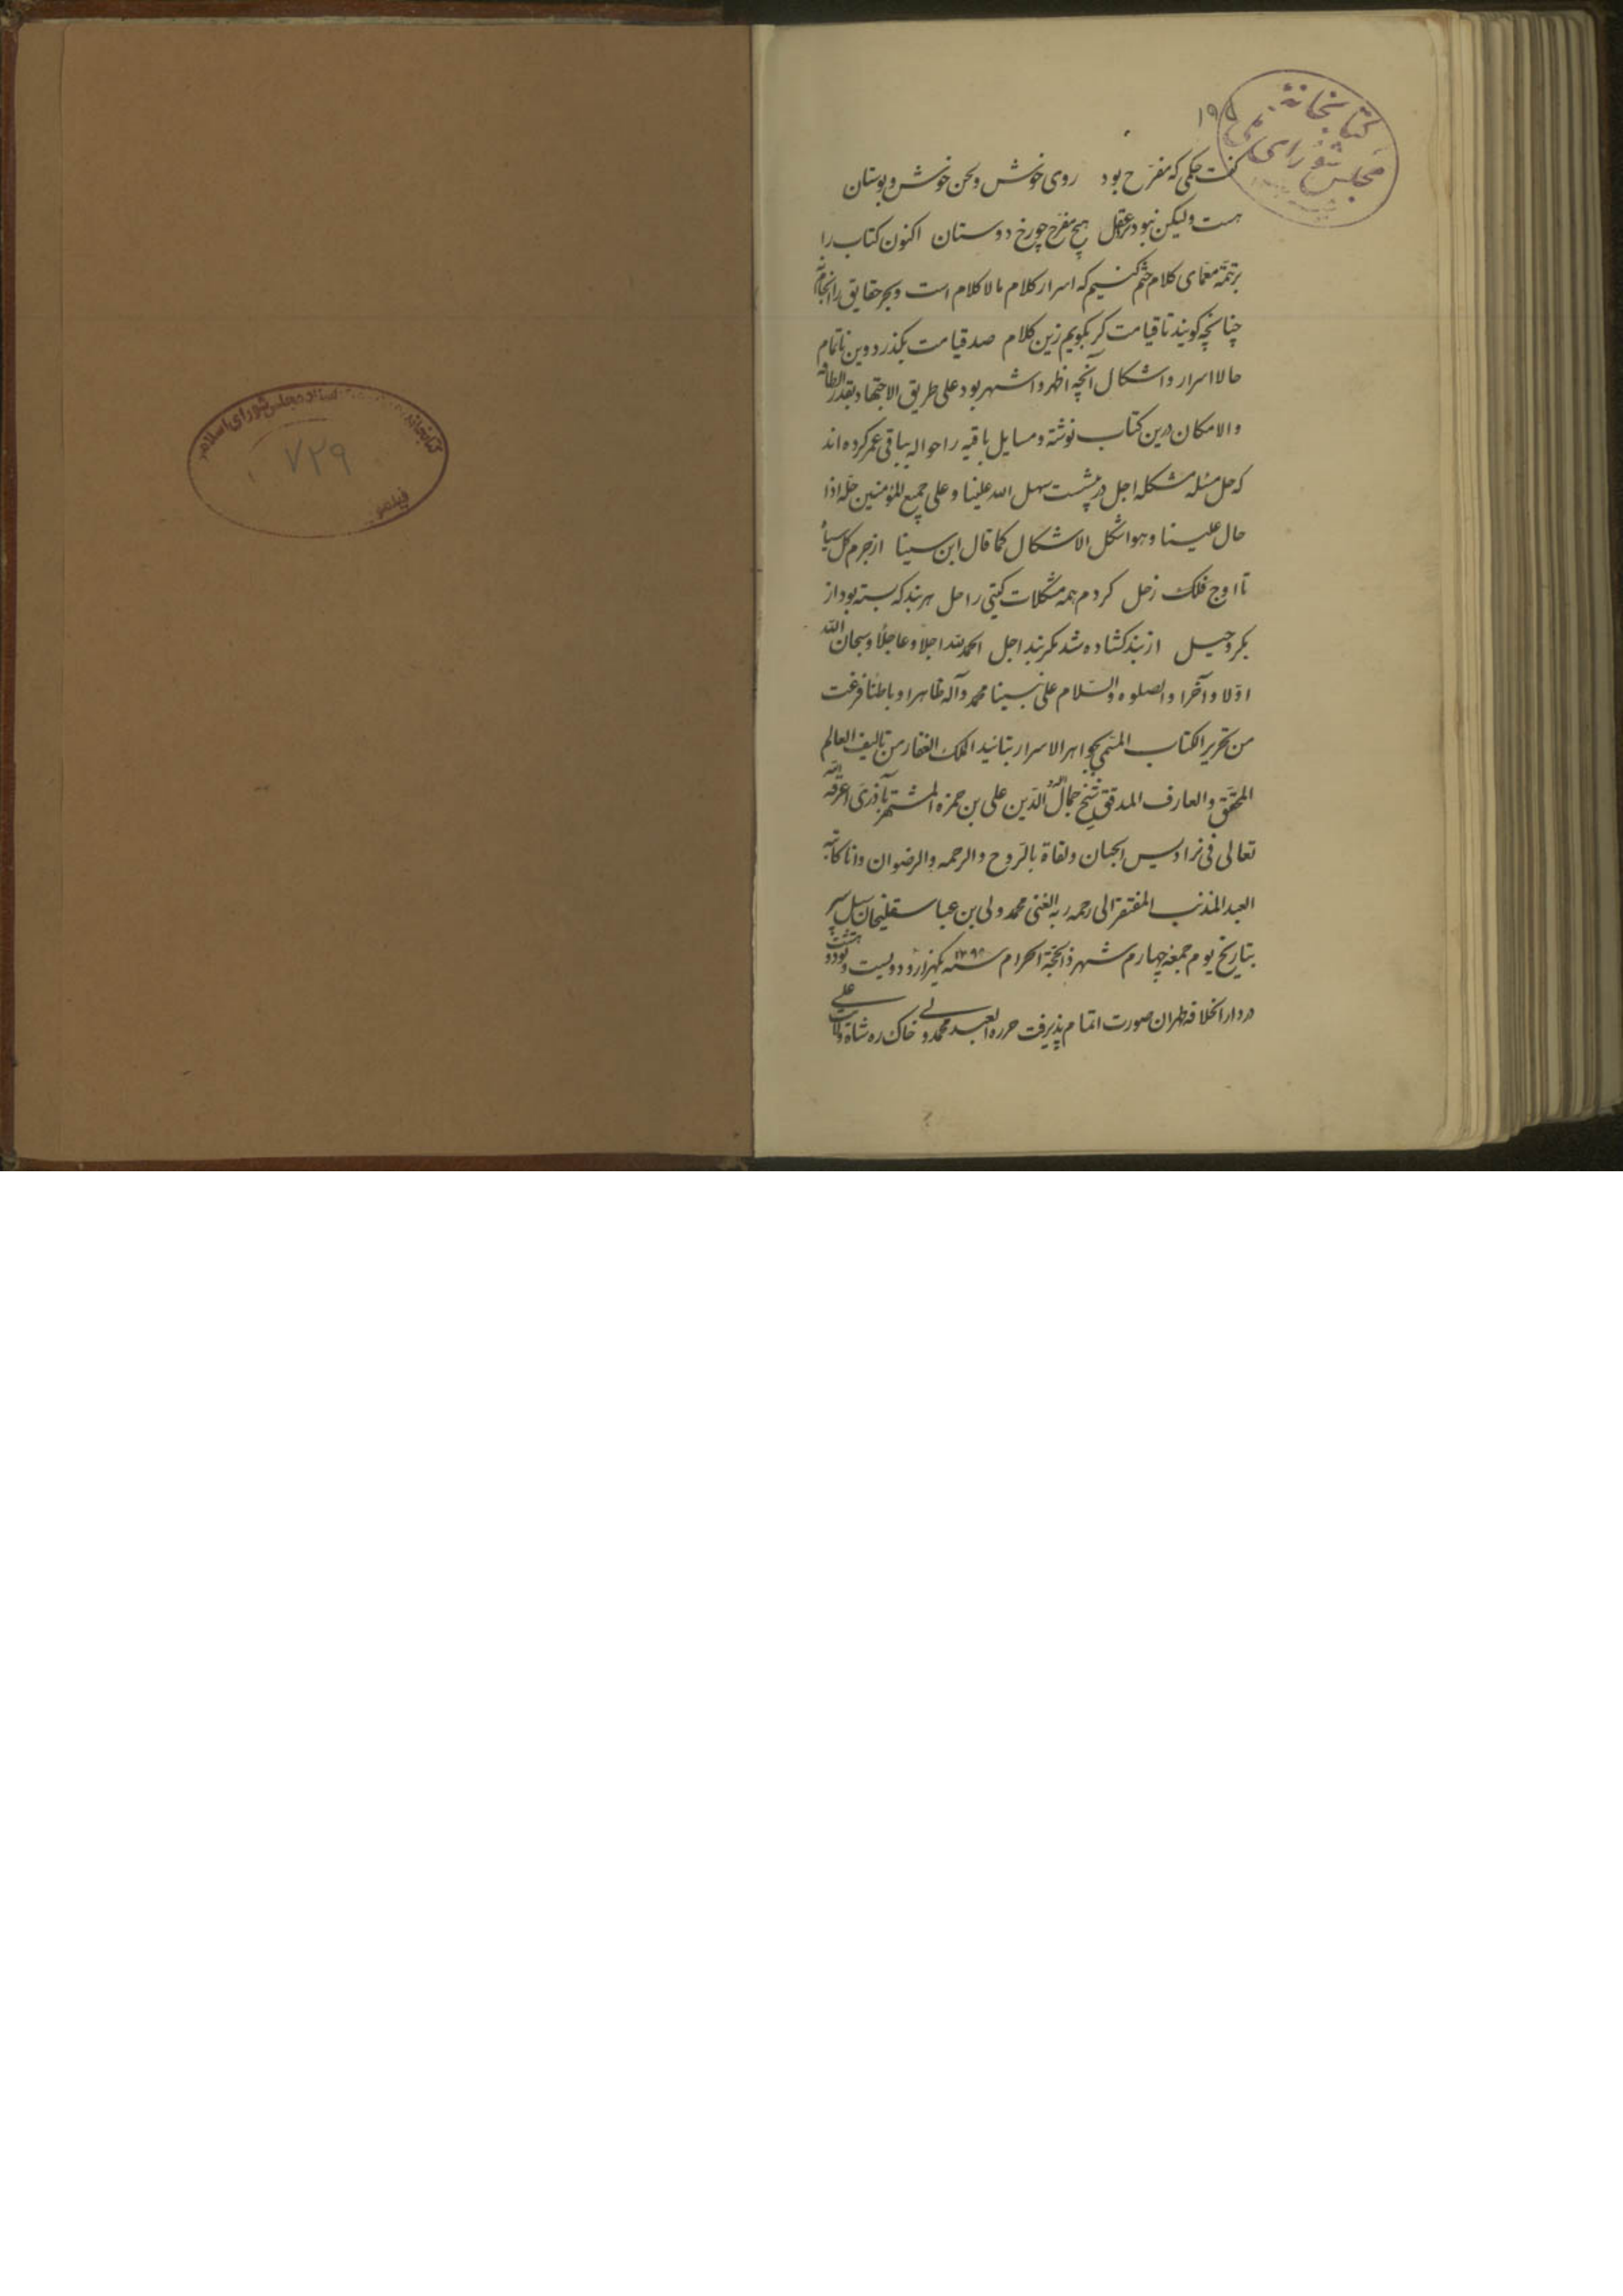 کتابخانه
مجلس شورای ملی
گفت حکیمی که مفرح بود روی خوش و لحن خوش و بوستان
هست ولیکن نبود نزد عقل هیچ مفرح چو رخ دوستان اکنون کتاب را
بر تتمه معمای کلام ختم کنیم که اسرار کلام مالا کلام است و بحر حقایق را انجام نه
چنانچه کویند تا قیامت کر بکویم زین کلام صد قیامت بکذرد وین ناتمام
حالا اسرار و اشکال آنچه اظهر و اشهر بود علی طریق الاجتهاد بقدر الطاقه
والامکان درین کتاب نوشته و مسایل باقیه را حواله بباقی عمر کرده اند
که حل مسئله مشکله اجل در پیشست سهل الله علینا و علی جمیع المؤمنین حله اذا
حال علینا و هو اشکل الاشکال کما قال ابن سینا از جرم کل سیاه
تا اوج فلک زحل کردم همه مشکلات کیتی را حل هر بند که بسته بود از
مکر و حیل از بند کشاده شد مکر بند اجل الحمد لله اجلا و عاجلا و سبحان الله
اولا و آخرا و الصلوه والسلام علی نبینا محمد و آله ظاهرا و باطنا فرغت
من تحریر الکتاب المسمی بجواهر الاسرار بتائید الملک الغفار من تالیف العالم
المحقق والعارف المدقق شیخ جمال الدین علی بن حمزه المشتهر بآذری اغرقه الله
تعالی فی فرادیس الجنان ولقاة بالروح والرحمه والرضوان وانا کاتبه
العبد المذنب المفتقر الی رحمه ربه الغنی محمد ولی بن عباسقلیخان
بتاریخ یوم جمعه چهارم شهر ذالحجة الحرام سنه ۱۲۹۸ یکهزار و دویست و نود و هشت
در دار الخلافه طهران صورت اتمام پذیرفت حرره العبد محمد ولی خاک ره شاه ولایت علی
کتابخانه اسناد مجلس شورای اسلامی
۷۲۹